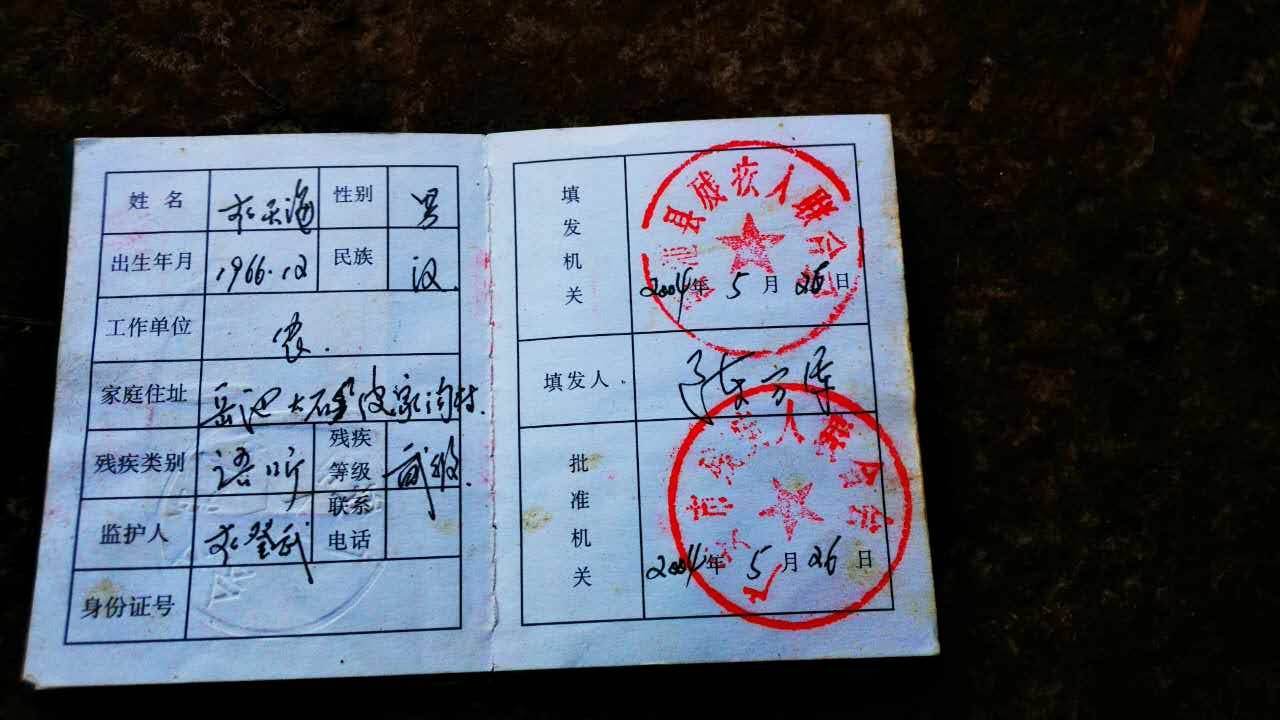 姓名 天海 性别 男
出生年月 1966.12 民族 汉.
工作单位 农.
家庭住址 岳池大石 皮家沟村.
残疾类别 语 听 残疾等级 贰级.
监护人 登武 联系电话
身份证号
填发机关
县残疾人联合会
2004年 5月 26日
填发人.
陈
批准机关
市残疾人联合会
2004年 5月 26日